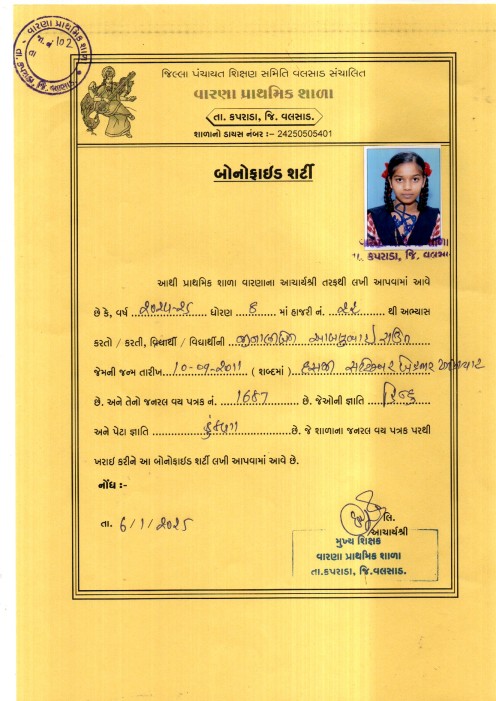 વારણા પ્રાથમિક શાળા
મા. નં 102
તા. કપરાડા, જિ. વલસાડ.
જિલ્લા પંચાયત શિક્ષણ સમિતિ વલસાડ સંચાલિત
વારણા પ્રાથમિક શાળા
તા. કપરાડા, જિ. વલસાડ.
શાળાનો ડાયસ નંબર :– 24250505401
બોનોફાઈડ શર્ટી
વારણા પ્રાથમિક શાળા
તા. કપરાડા, જિ. વલસાડ
આથી પ્રાથમિક શાળા વારણાના આચાર્યશ્રી તરફથી લખી આપવામાં આવે
છે કે, વર્ષ ૨૦૨૪-૨૫ ધોરણ ૬ માં હાજરી નં. ૨૨ થી અભ્યાસ
કરતો / કરતી, વિદ્યાર્થી / વિદ્યાર્થીની
જેમની જન્મ તારીખ 10-09-2011 ( શબ્દમાં )
છે. અને તેનો જનરલ વય પત્રક નં. 1687 છે. જેઓની જ્ઞાતિ હિન્દુ
અને પેટા જ્ઞાતિ કુંકણા છે. જે શાળાના જનરલ વય પત્રક પરથી
ખરાઈ કરીને આ બોનોફાઈડ શર્ટી લખી આપવામાં આવે છે.
નોંધ :-
તા. 6/1/2025
લિ.
આચાર્યશ્રી
મુખ્ય શિક્ષક
વારણા પ્રાથમિક શાળા
તા.કપરાડા, જિ.વલસાડ.